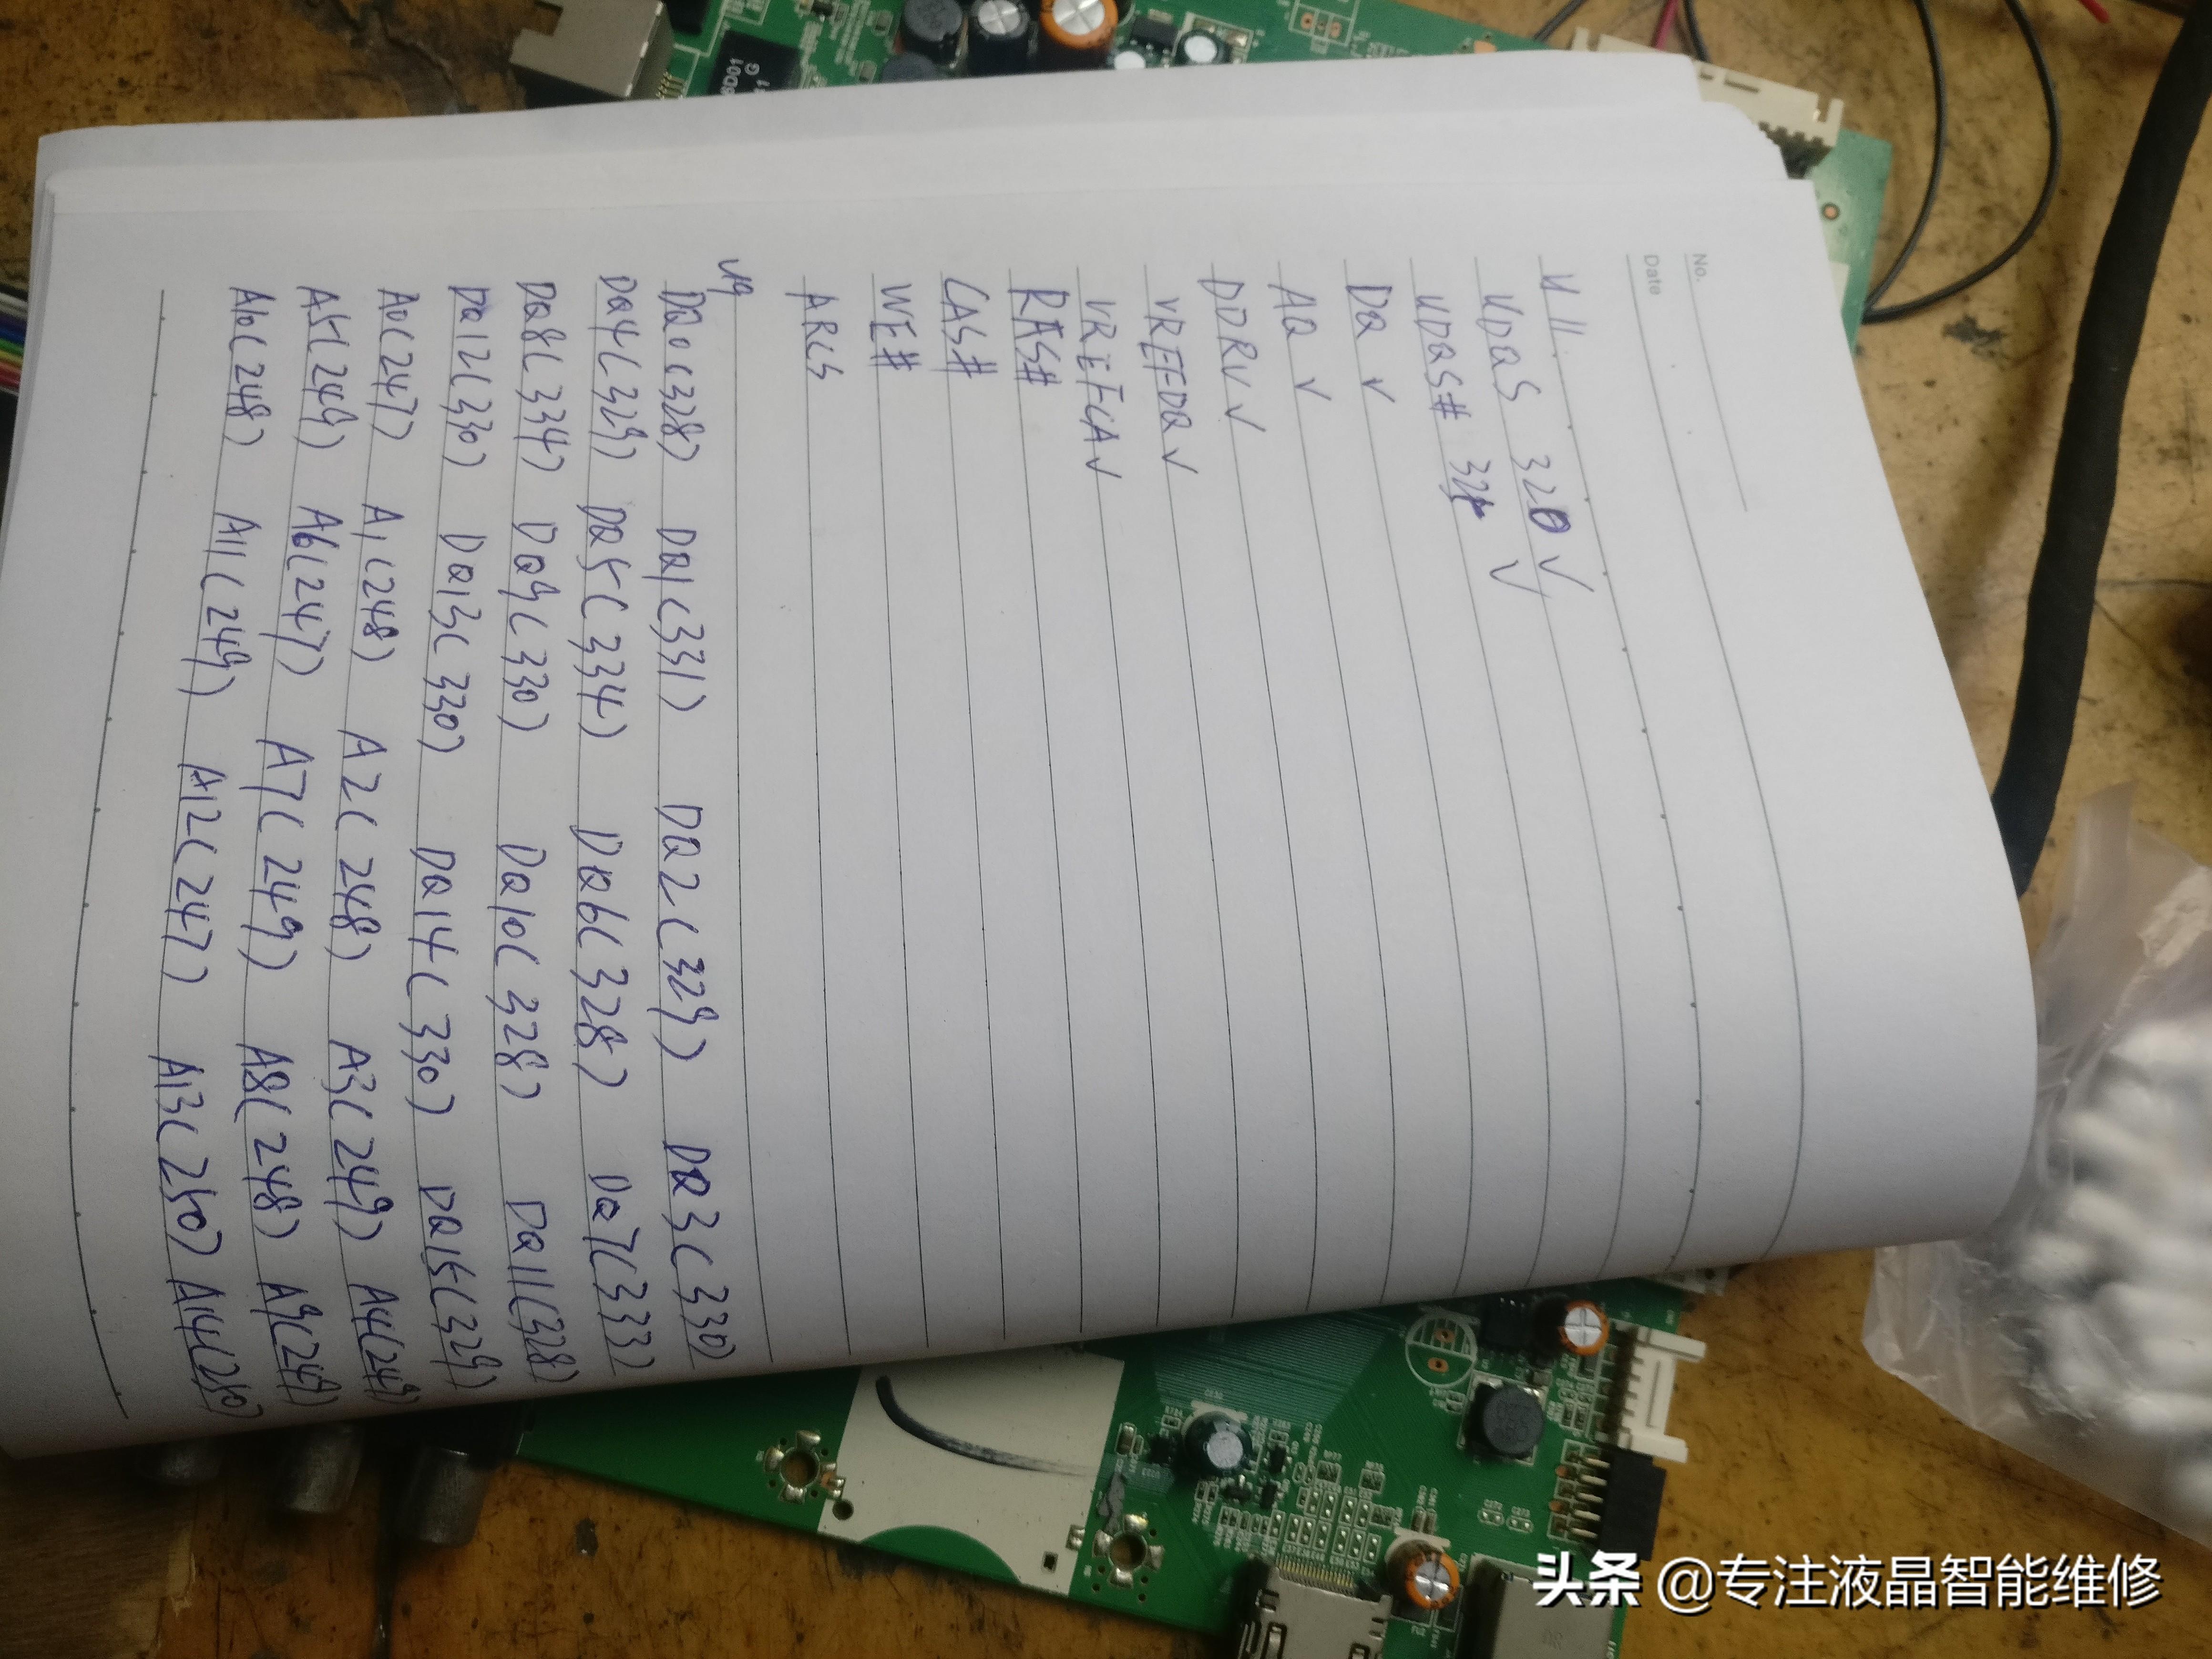 No.
Date
U11
UDQS 320 √
UDQS# 324 √
DQ √
AQ √
DDRV √
VREFDQ √
VREFCA √
RAS#
CAS#
WE#
ARCS
U9
DQ0(328) DQ1(331) DQ2(329) DQ3(330)
DQ4(329) DQ5(334) DQ6(328) DQ7(333)
DQ8(334) DQ9(330) DQ10(328) DQ11(328)
DQ12(330) DQ13(330) DQ14(330) DQ15(329)
A0(247) A1(248) A2(248) A3(249) A4(249)
A5(249) A6(247) A7(249) A8(248) A9(249)
A10(248) A11(249) A12(247) A13(250) A14(250)
头条 @专注液晶智能维修